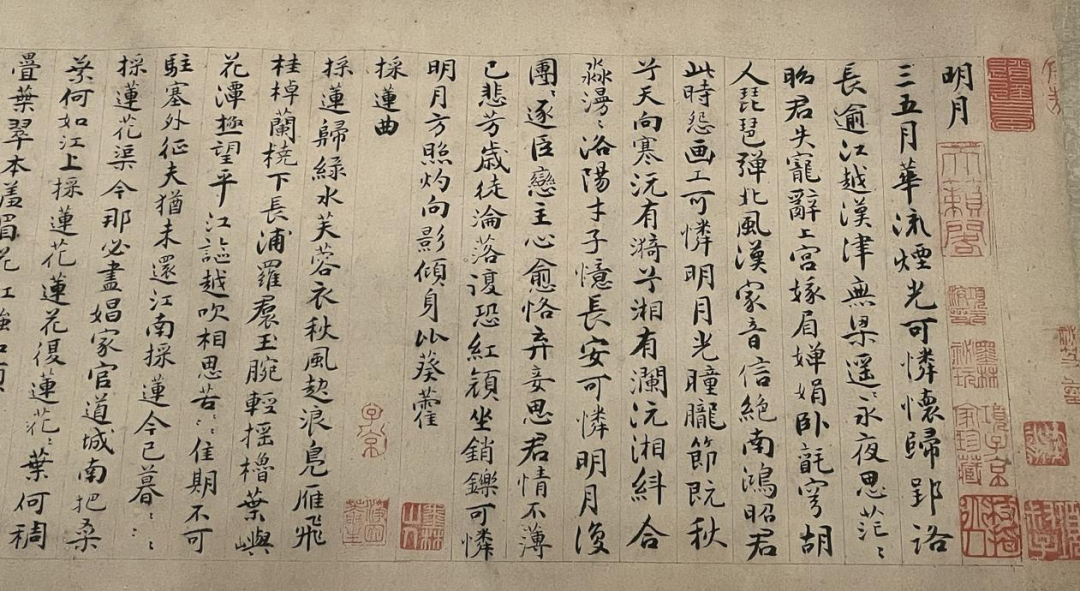 明月
三五月華流煙光可憐懷歸郢路
長逾江越漢津無梁遥〻永夜思茫〻
昭君失寵辭上宮嫁眉嬋娟卧氈穹胡
人琵琶彈北風漢家音信絶南鴻昭君
此時怨画工可憐明月光曈朧節既秋
兮天向寒沅有漪兮湘有瀾沅湘糾合
淼漫〻洛陽才子憶長安可憐明月復
團〻逐臣戀主心愈恪弃妾思君情不薄
已悲芳歲徒淪落復恐紅顏坐銷鑠可憐
明月方照灼向影傾身比葵藿
採蓮曲
採蓮歸緑水芙蓉衣秋風起浪鳧雁飛
桂棹蘭橈下長浦羅裠玉腕輕揺櫓葉嶼
花潭極望平江謳越吹相思苦〻〻佳期不可
駐塞外征夫猶未還江南採蓮今已暮〻〻
採蓮花渠今那必盡娼家官道城南把桑
葉何如江上採蓮花蓮花復蓮花〻葉何稠
疊葉翠本羞眉花紅強如頰
天籟閣
項子京家珍藏
子京
墨林山人